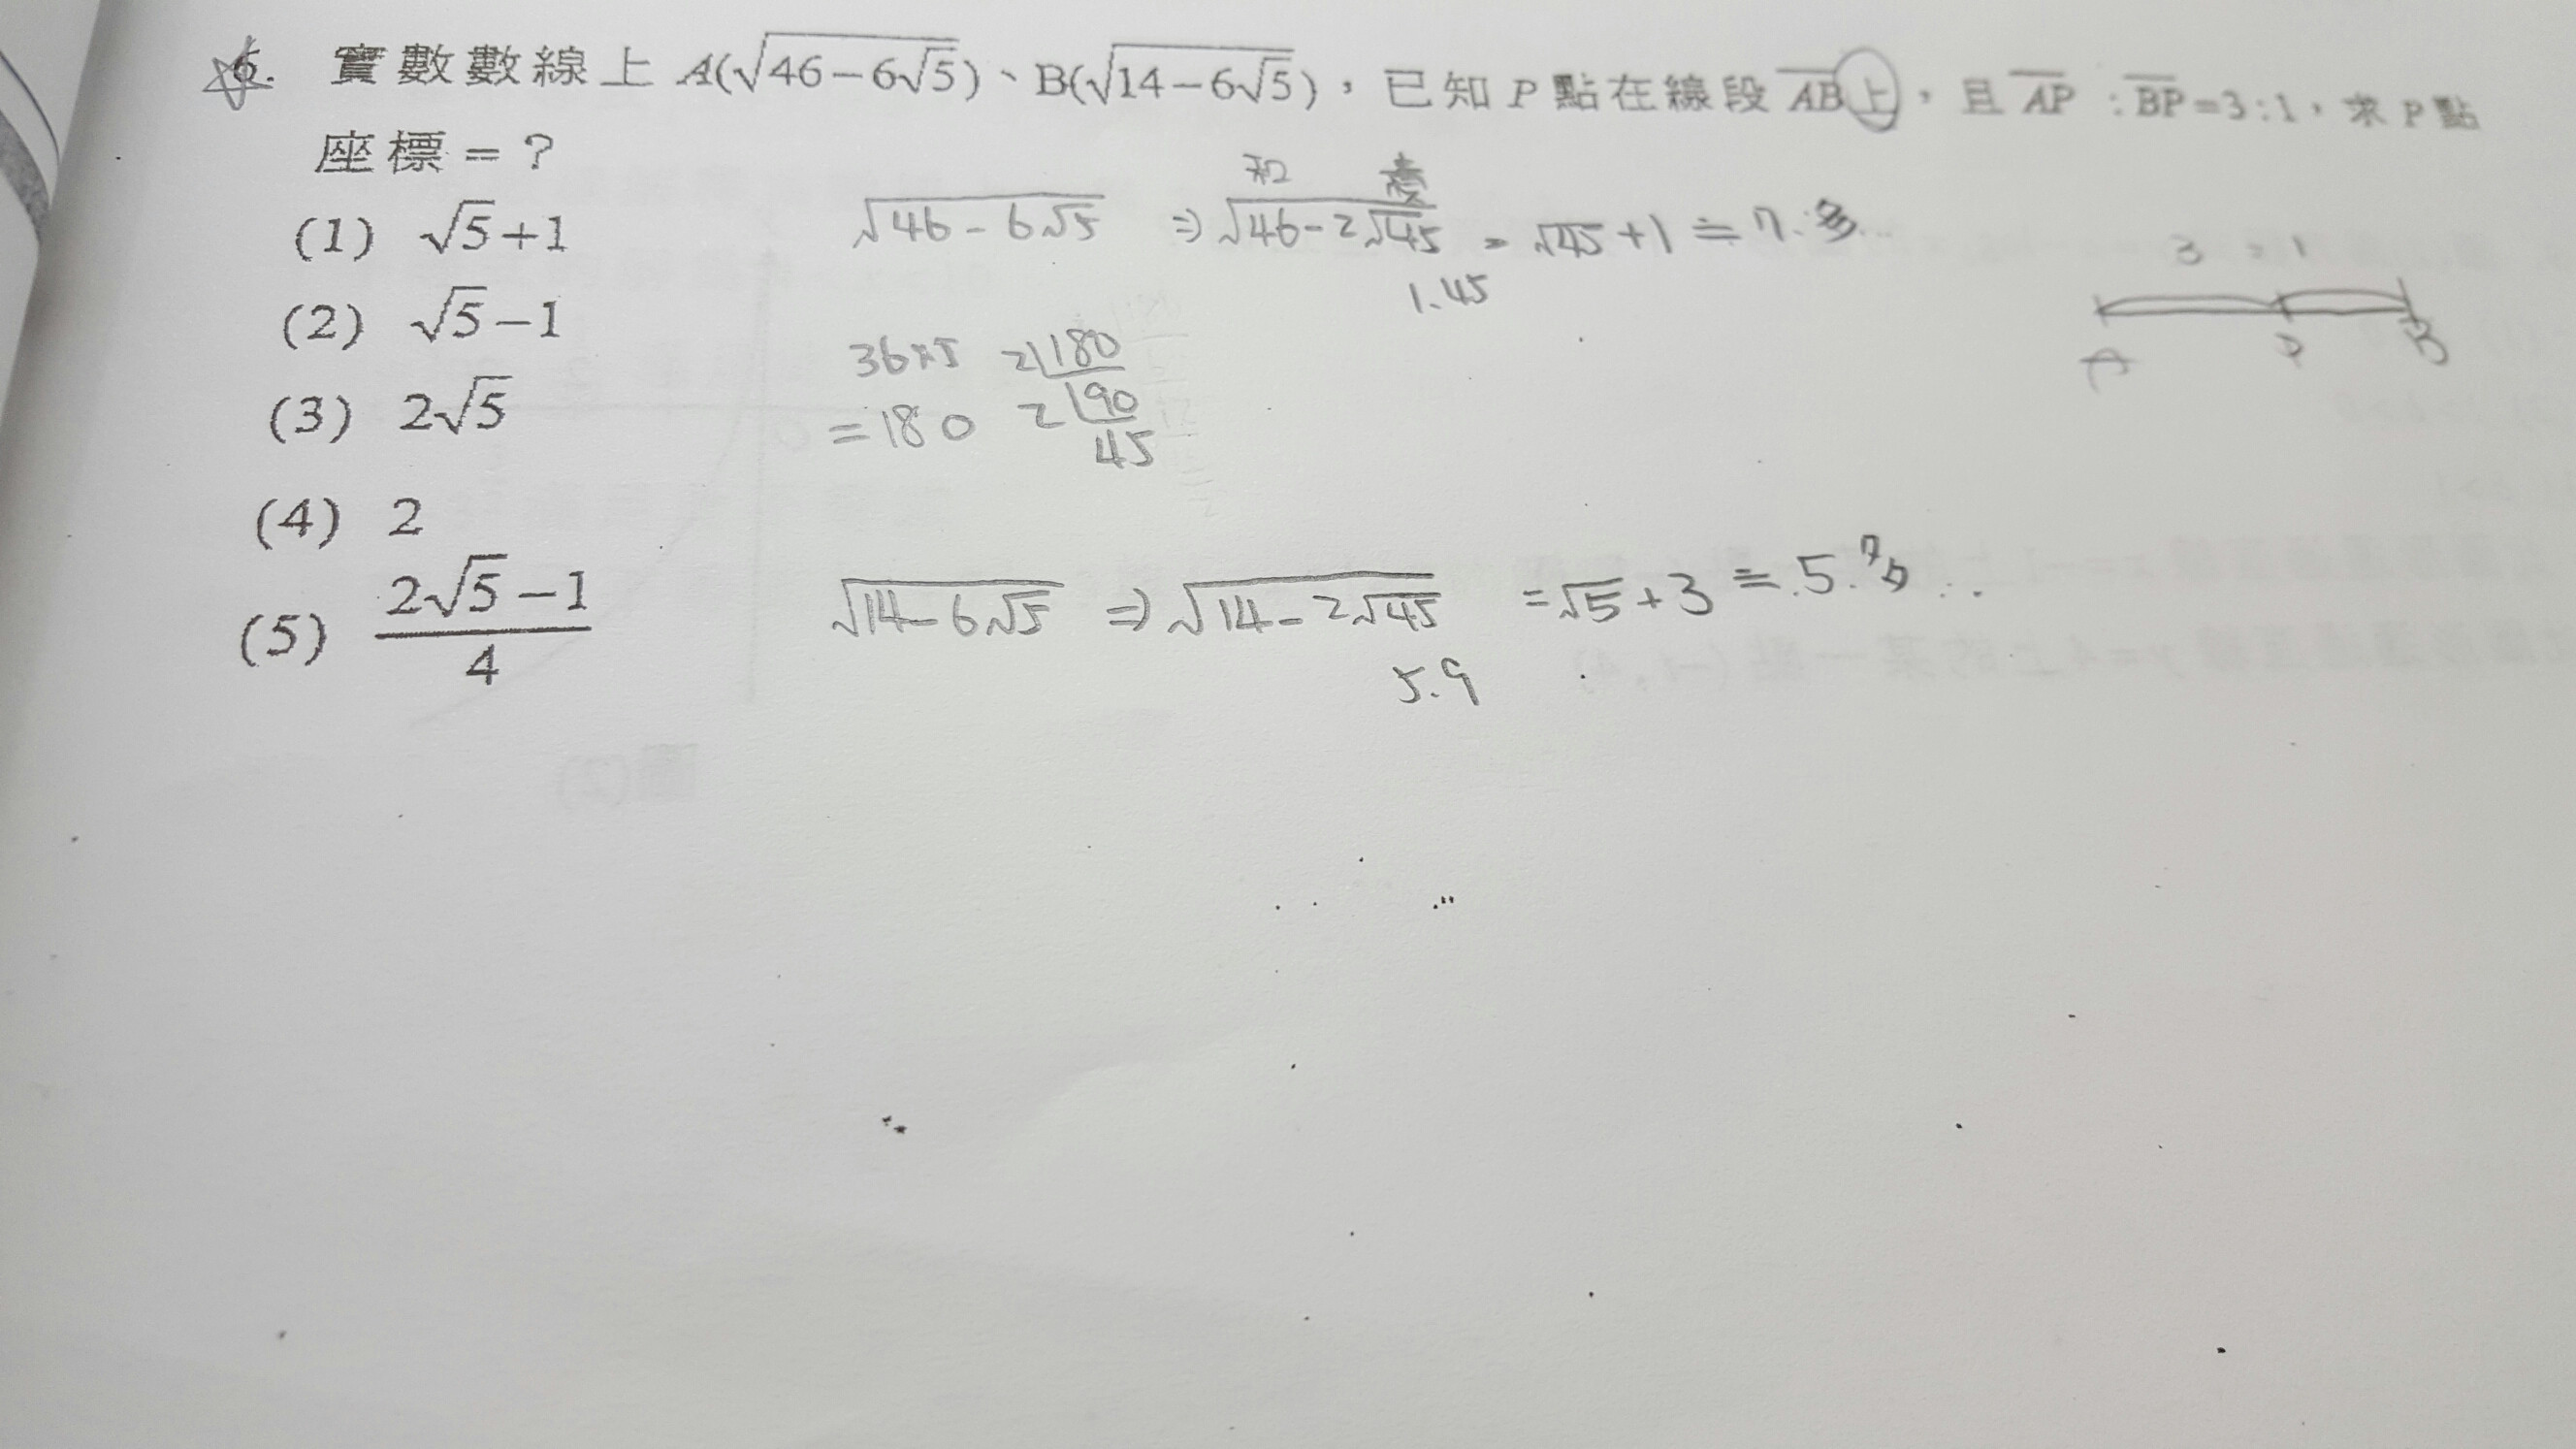 6. 實數數線上 A(√(46−6√5))、B(√(14−6√5)),已知 P 點在線段 AB 上,且 AP : BP = 3 : 1,求 P 點
座標 = ?
(1) √5+1
(2) √5−1
(3) 2√5
(4) 2
(5) (2√5−1)/4
和 積
√(46−6√5) ⇒ √(46−2√45) = √45+1 ≒ 7.多...
1.45
36×5 2|180
=180 2|90
45
√(14−6√5) ⇒ √(14−2√45) = √5+3 ≒ 5.多...
5.9
3 : 1
A P B